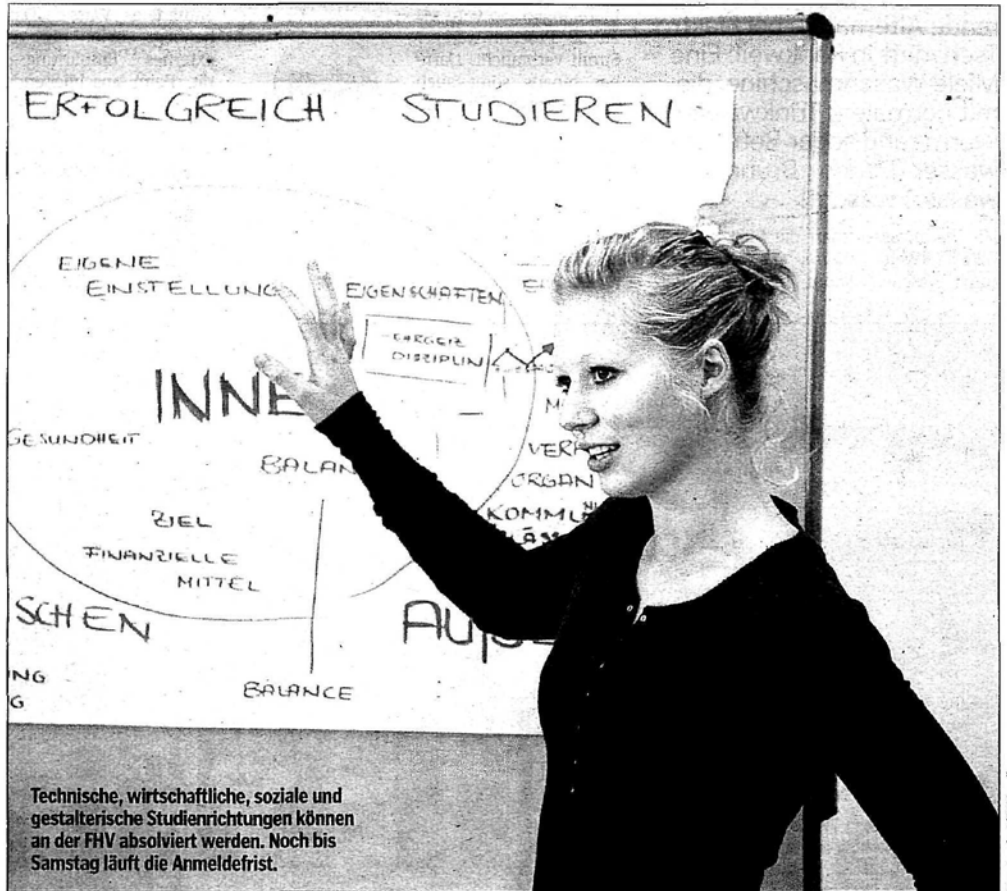 ERFOLGREICH STUDIEREN
EIGENE
EINSTELLUNG
EIGENSCHAFTEN
EHRGEIZ
DISZIPLIN
INNE
GESUNDHEIT
BALAN
VERA
ORGAN
KOMMU
ZIEL
FINANZIELLE
MITTEL
SCHEN
NG
G
BALANCE
Technische, wirtschaftliche, soziale und
gestalterische Studienrichtungen können
an der FHV absolviert werden. Noch bis
Samstag läuft die Anmeldefrist.